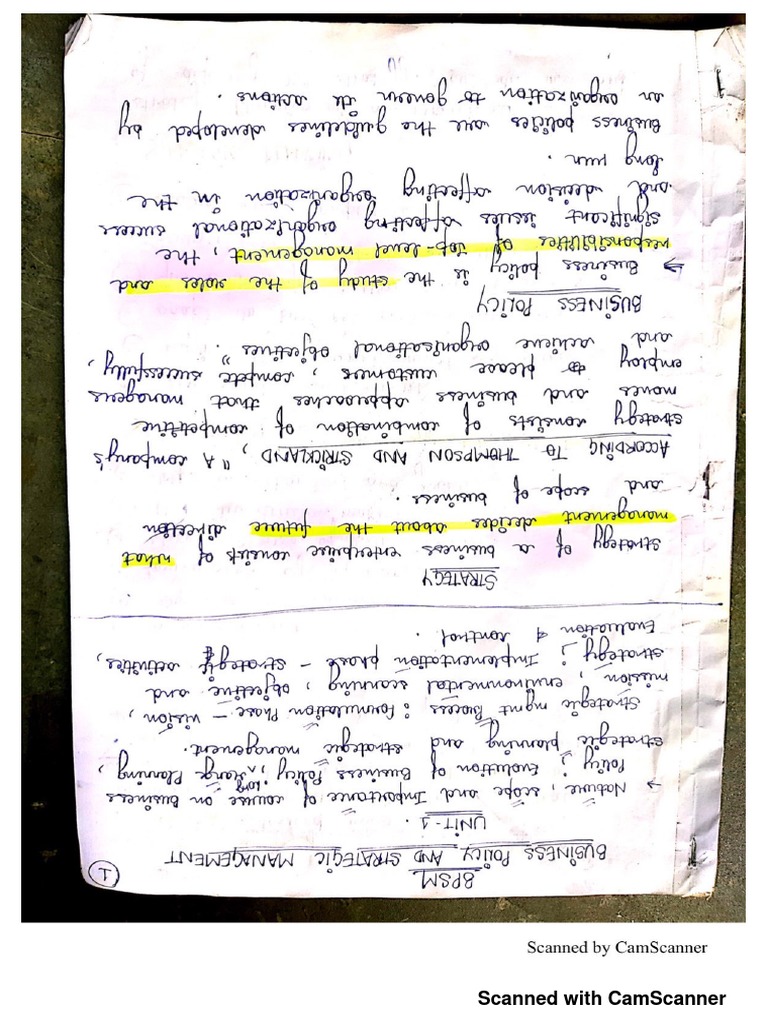 1
BPSM
BUSINESS POLICY AND STRATEGIC MANAGEMENT
UNIT-1.
→ Nature, scope and Importance of course on Business
Policy; Evolution of Business Policy, long Range Planning,
strategic planning and strategic management.
Strategic mgmt Process: Formulation Phase - vision,
mission, environmental scanning, objective and
strategy; Implementation phase - strategic activities,
Evaluation & control.
STRATEGY
strategy of a business enterprise consist of what
management decides about the future direction
and scope of business.
ACCORDING TO THOMPSON AND STRICKLAND, "A company's
strategy consists of combination of competitive
moves and business approaches that managers
employ to please customers, compete successfully,
and achieve organisational objectives".
BUSINESS POLICY
→ Business policy is the study of the roles and
responsibilities of top-level management, the
significant issues affecting organizational success
and decision affecting organization in the
long run.
Business policies are the guidelines developed by
an organization to govern its actions.
Scanned by CamScanner
Scanned with CamScanner